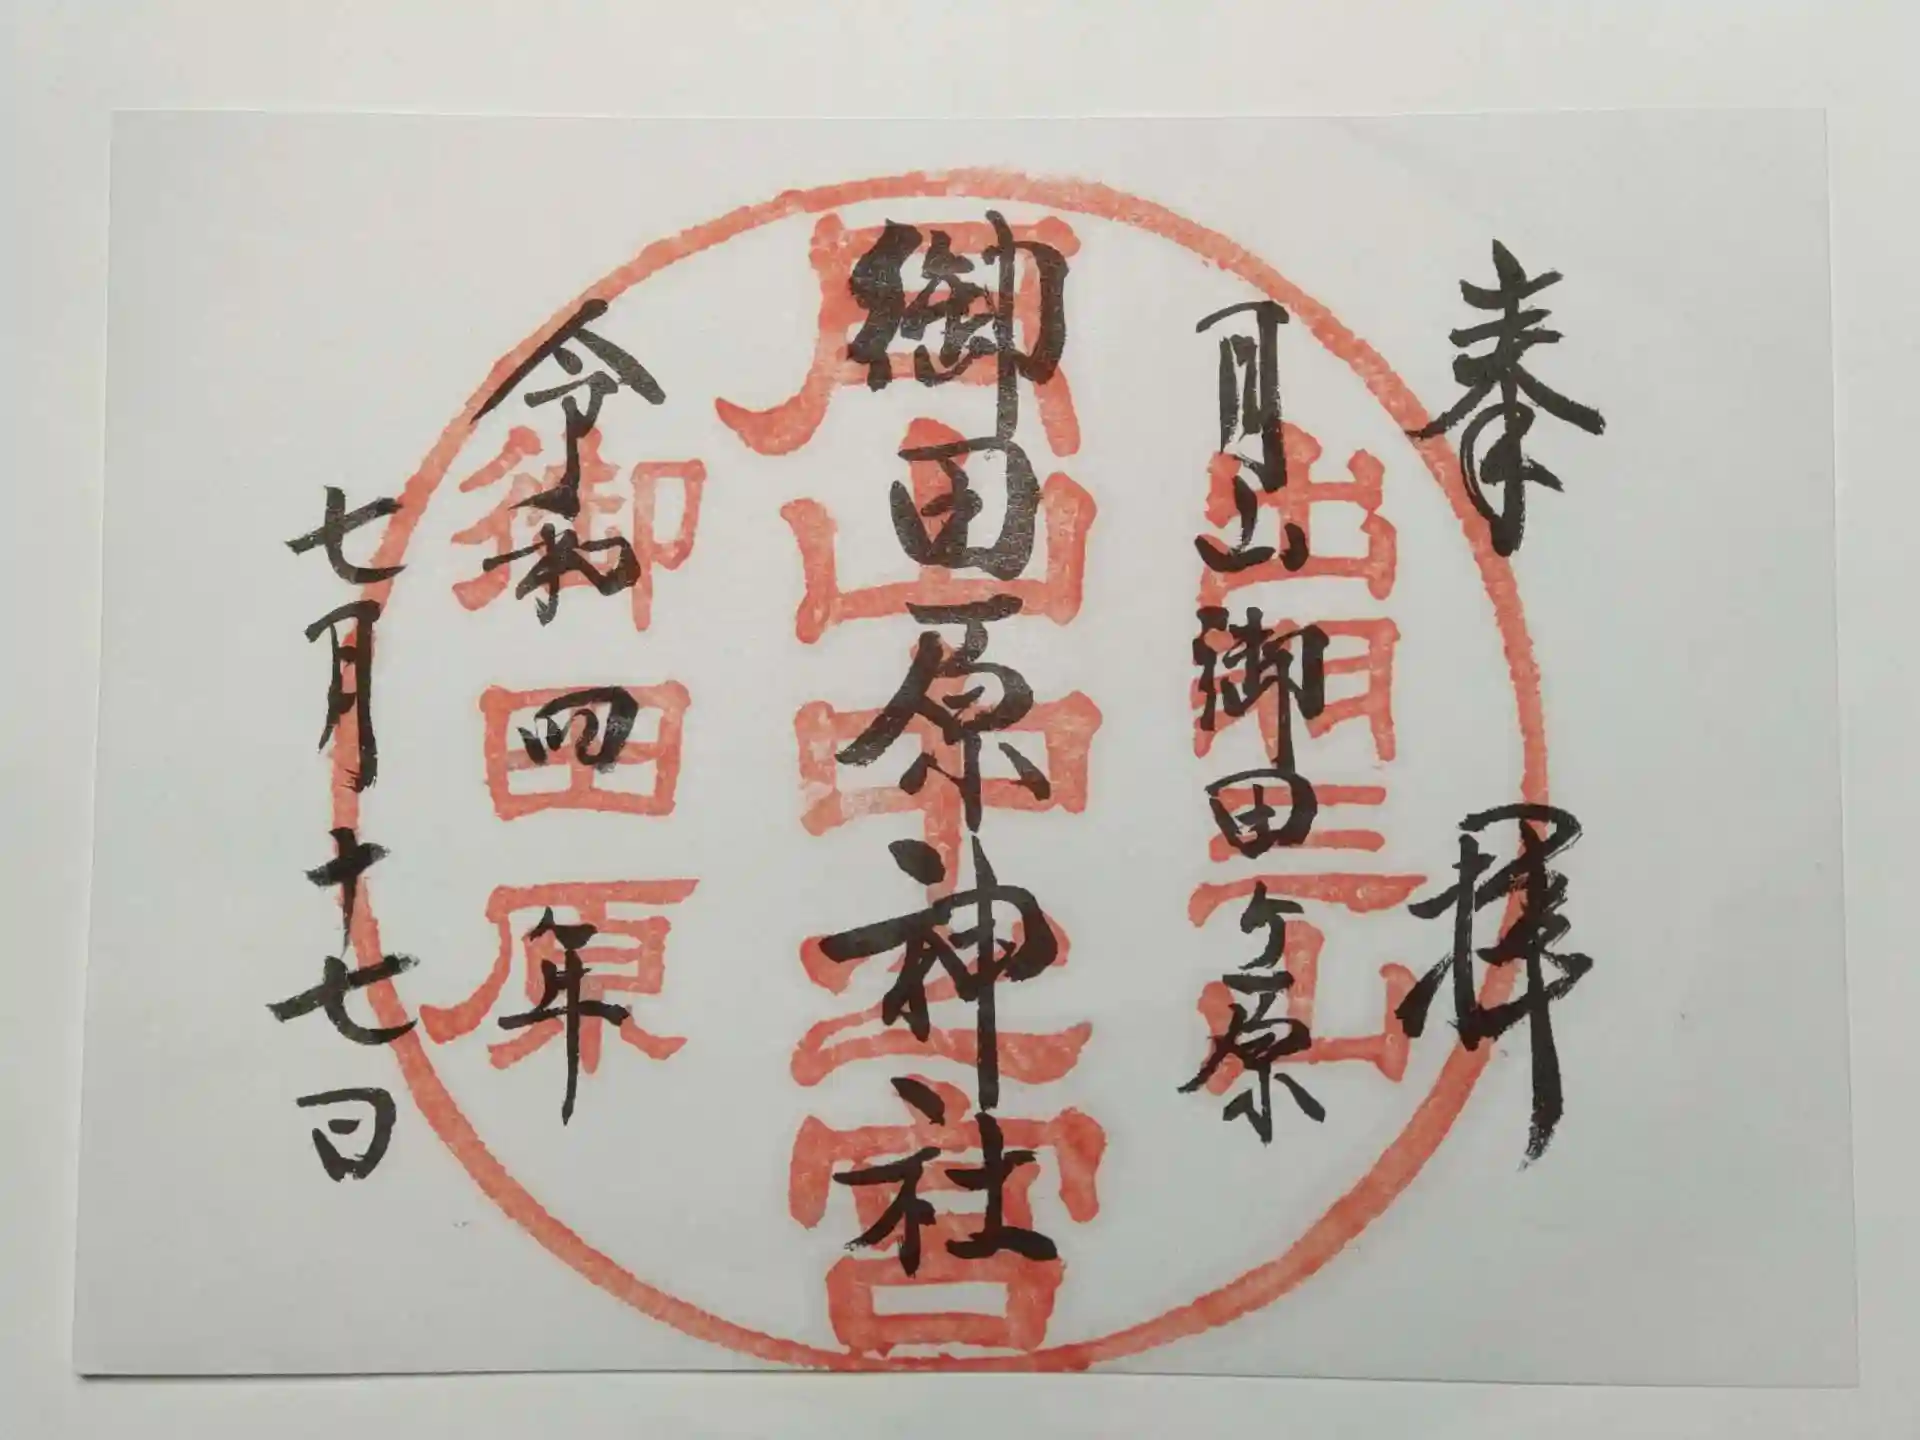 奉拝
月山御田ヶ原
御田原神社
令和四年
七月十七日
出羽三山
月山中之宮
御田原